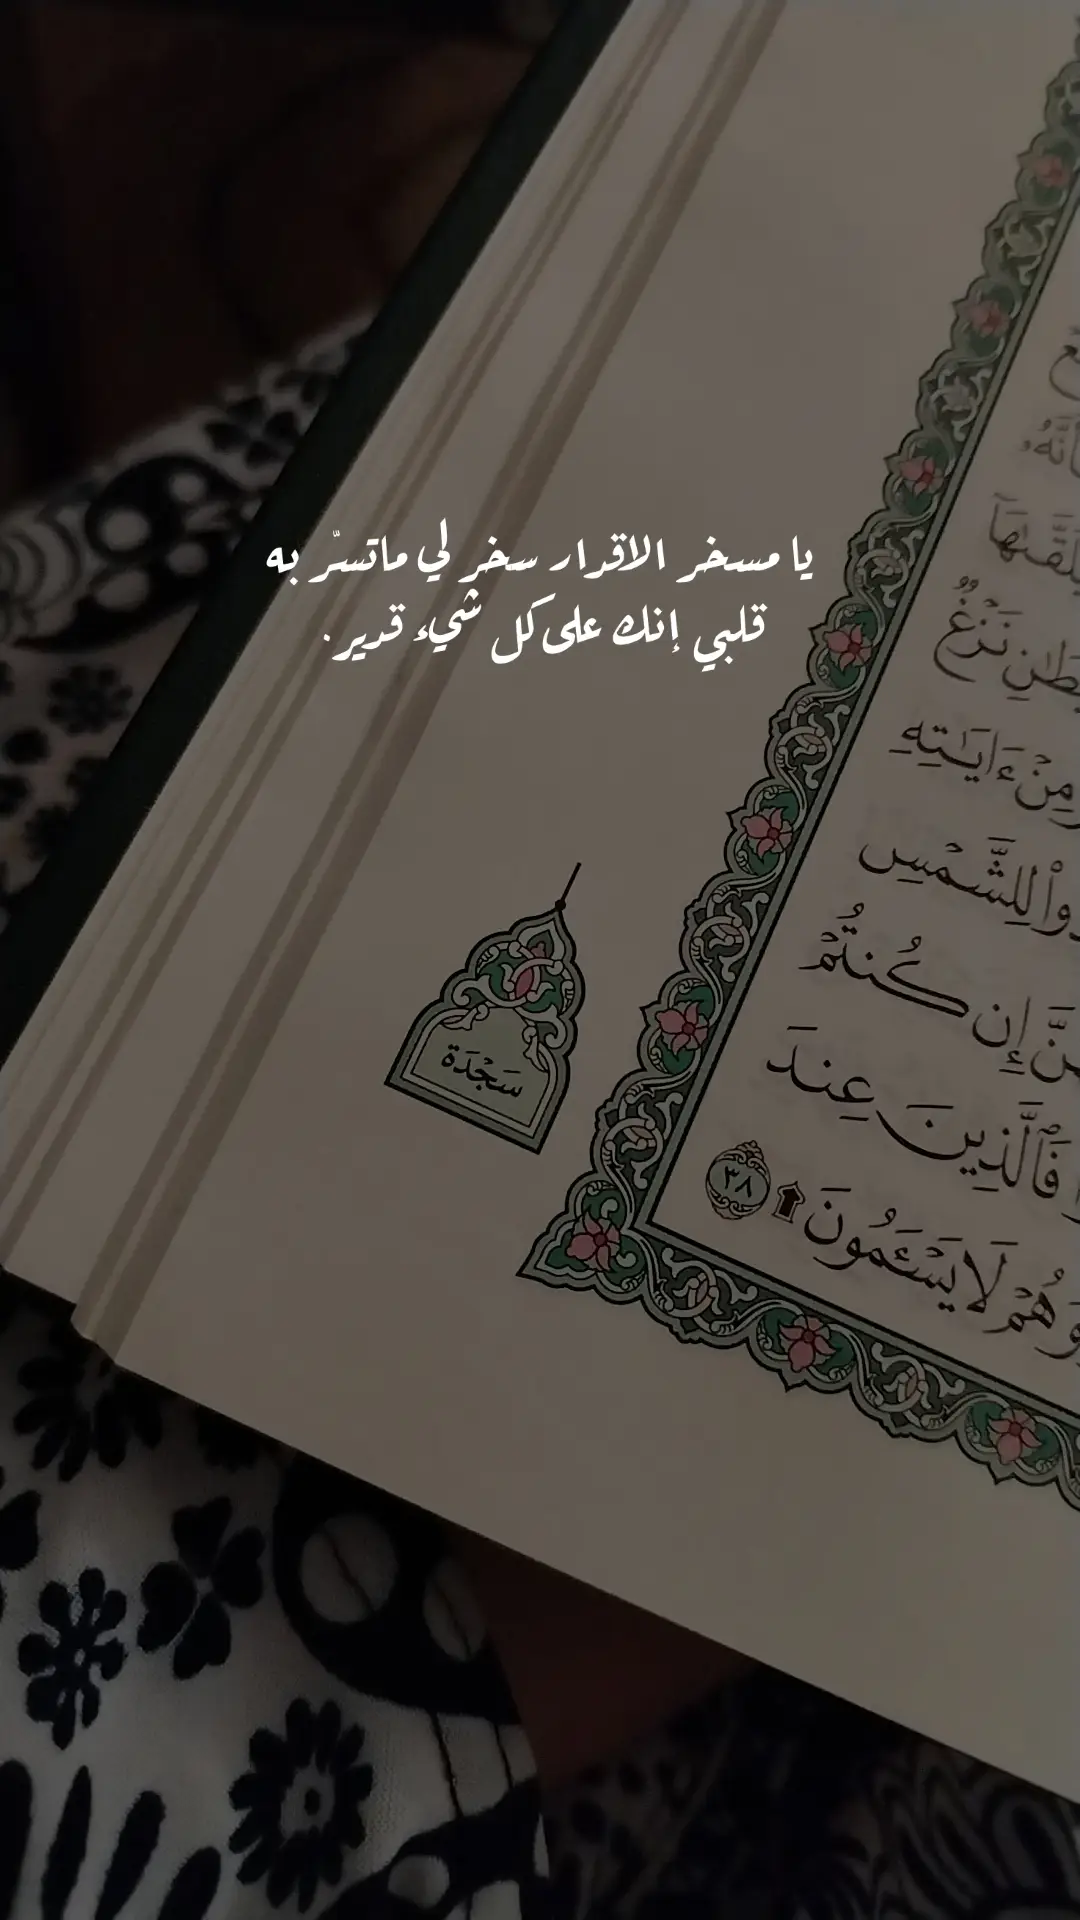 يا مسخر الاقدار سخر لي ماتسرّ به
قلبي إنك على كل شيء قدير.
نَزْغٌ
ءَايَٰتِهِ
لِلشَّمْسِ
إِن كُنتُمْ
فَٱلَّذِينَ عِندَ
وَهُمْ لَا يَسْـَٔمُونَ ۩ ٣٨
سَجْدَة